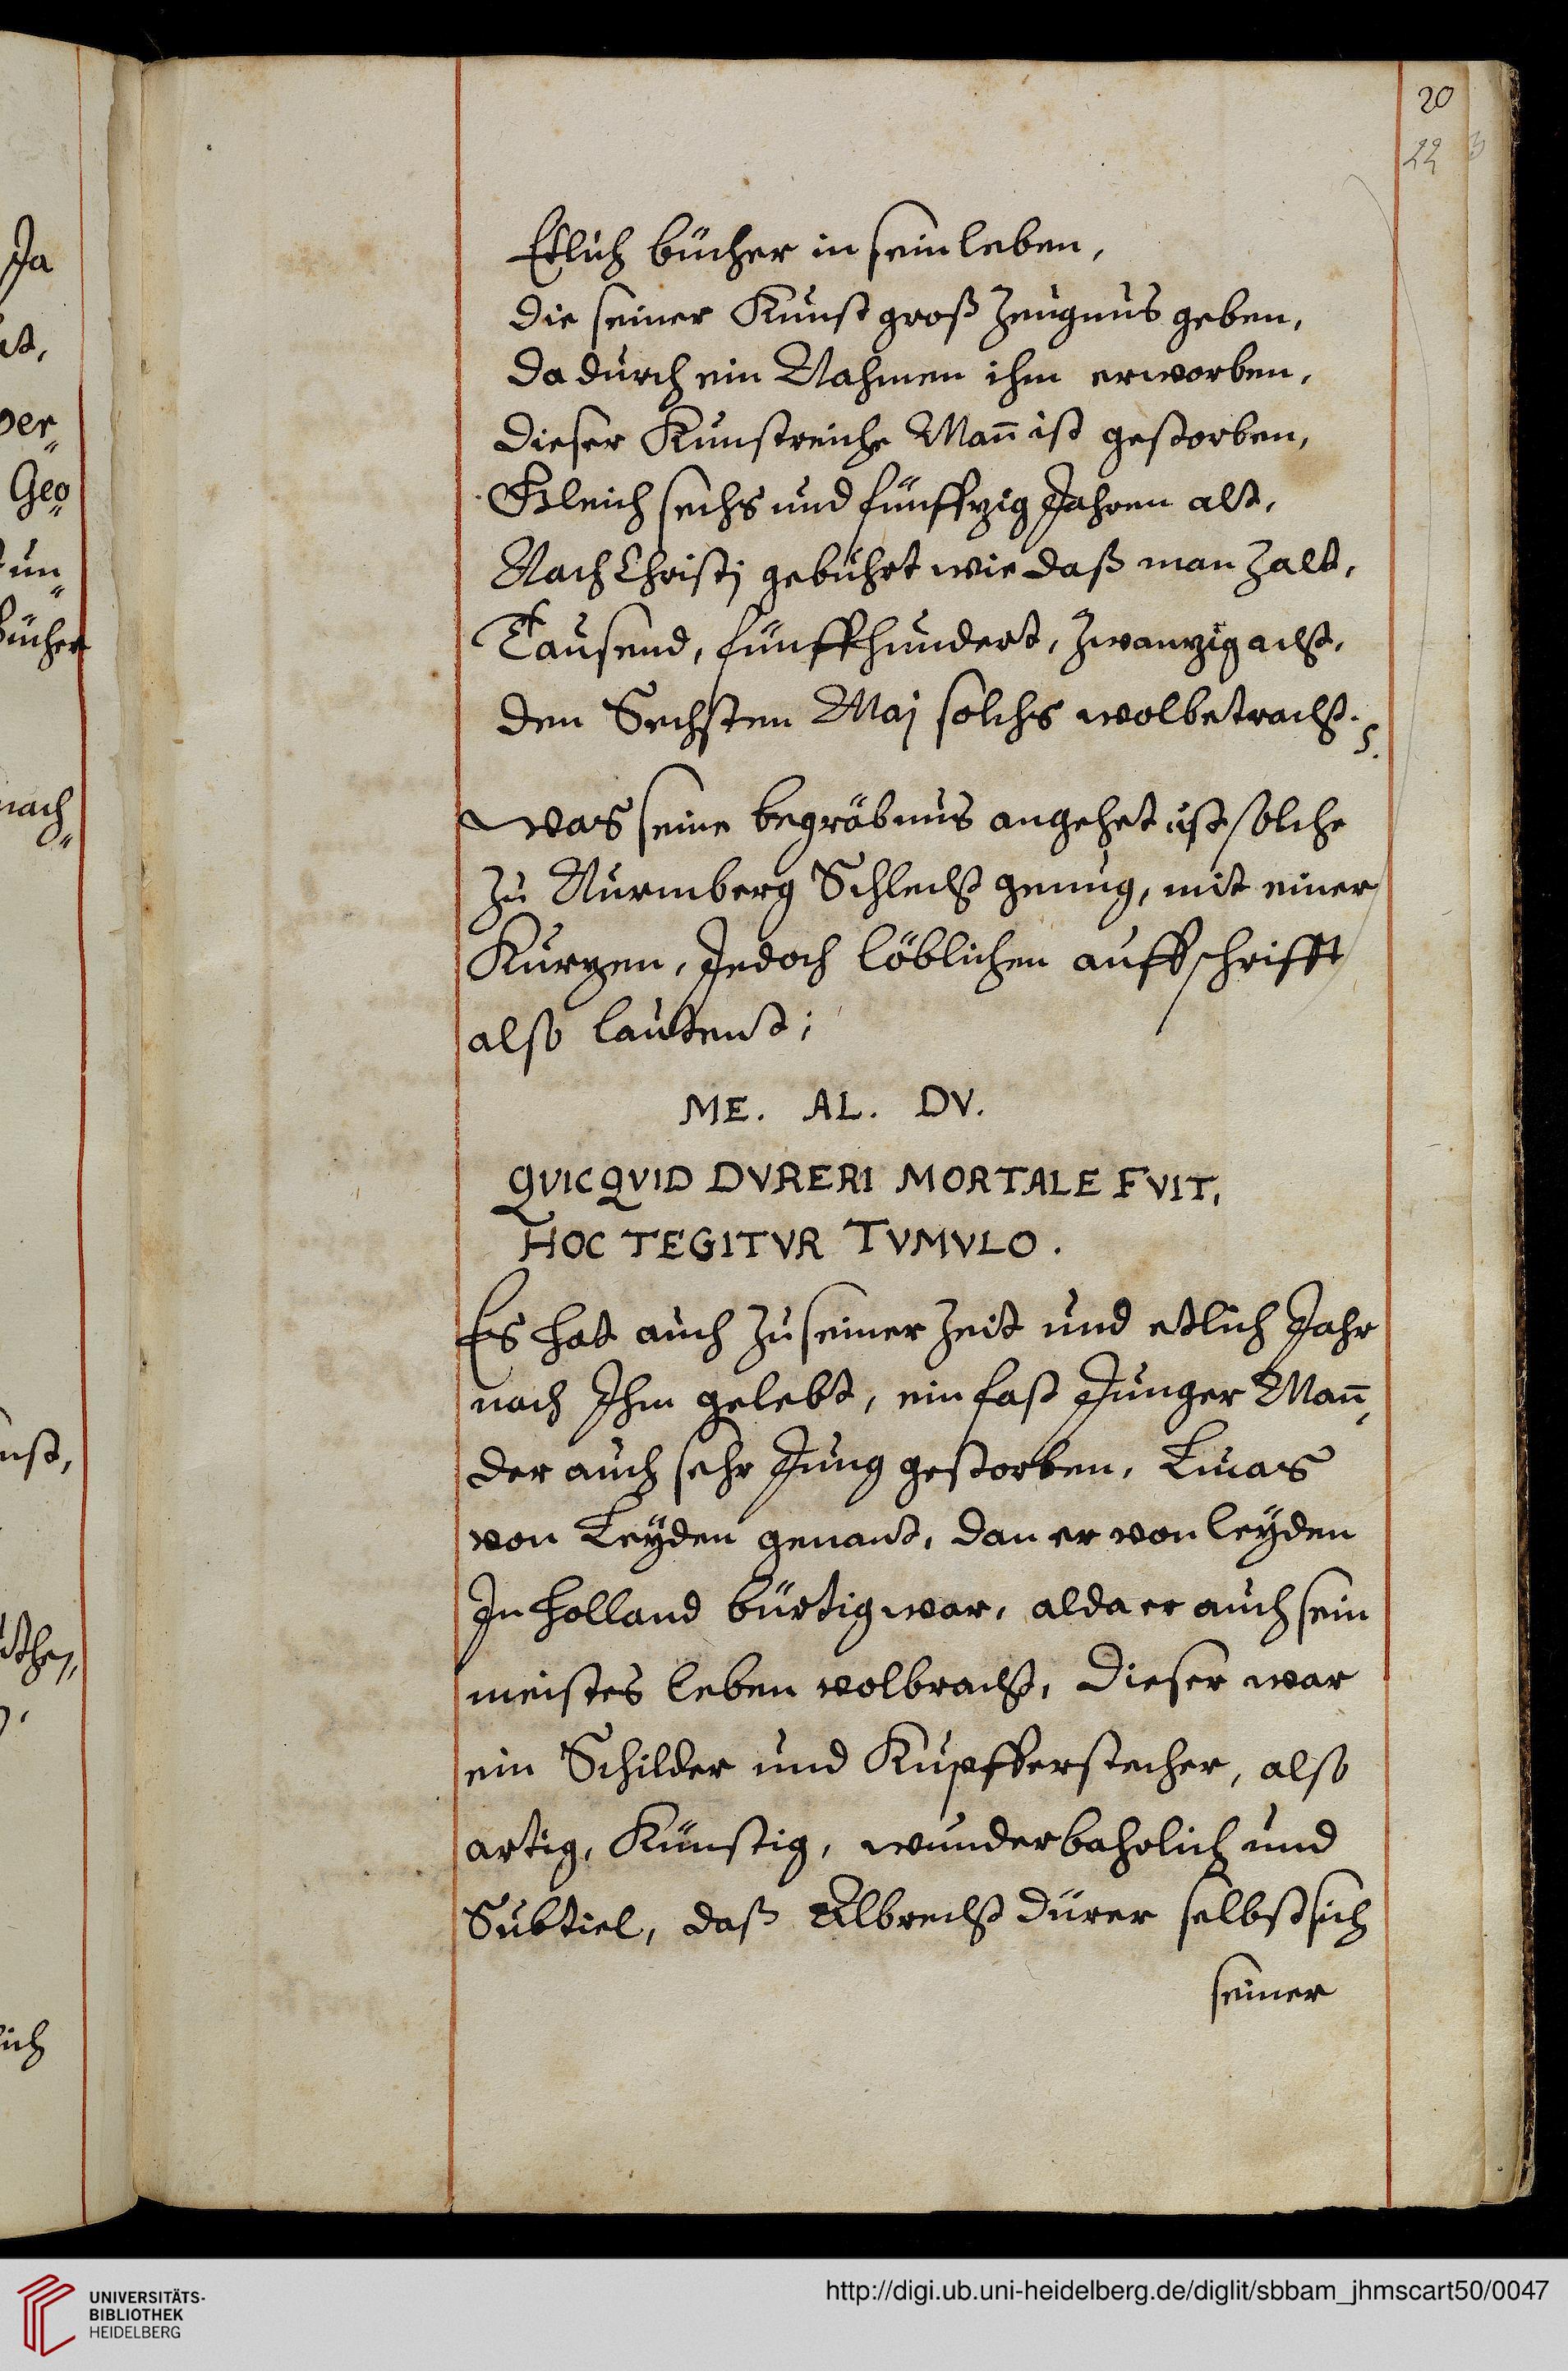 20
22
Etlich bücher in sein leben,
die seiner Kunst groß Zeugnus geben,
da durch ein Nahmen ihm erworben,
dieser Kunstreiche Man̄ ist gestorben,
Gleich sechs und fünffzig Jahren alt,
Nach Christj gebuhrt wie daß man Zalt,
Tausend, fünffhundert, Zwanzig acht,
den Sechsten Maj solchs wolbetracht.
was seine begräbnus angehet ist solche
Zu Nurmberg Schlecht genug, mit einer
Kurzen, Jedoch löblichen auffschrifft
also lautent;
ME. AL. DV.
QVICQVID DVRERI MORTALE FVIT,
HOC TEGITVR TVMVLO.
Es hat auch Zu seiner Zeit und etlich Jahr
nach Ihm gelebt, ein fast Junger Man̄,
der auch sehr Jung gestorben, Lucas
von Leyden genant, dan er von leyden
In Holland bürtig war, alda er auch sein
meistes leben volbracht, dieser war
ein Schilder und Kupfferstecher, also
artig, Künstig, wunderbahrlich und
Subtiel, daß Albrecht dürer selbst sich
seiner
Ja
ver„
Geo„
un„
bücher
nach„
UNIVERSITÄTS-
BIBLIOTHEK
HEIDELBERG
http://digi.ub.uni-heidelberg.de/diglit/sbbam_jhmscart50/0047